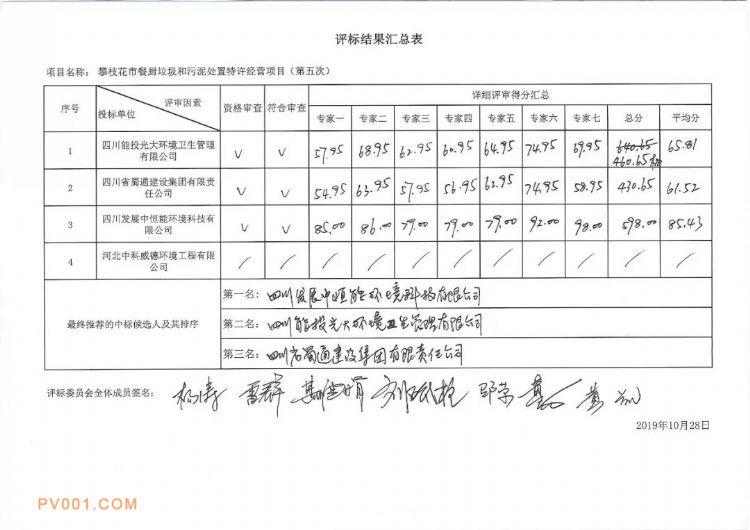 评标结果汇总表
项目名称: 攀枝花市餐厨垃圾和污泥处置特许经营项目（第五次）
序号 评审因素 投标单位 资格审查 符合审查 详细评审得分汇总
专家一 专家二 专家三 专家四 专家五 专家六 专家七 总分 平均分
1 四川能投光大环境卫生管理有限公司 V V 57.95 68.95 63.95 60.95 64.95 74.95 69.95 640.65 460.65 65.81
2 四川省蜀通建设集团有限责任公司 V V 54.95 63.95 57.95 56.95 62.95 74.95 58.95 430.65 61.52
3 四川发展中恒能环境科技有限公司 V V 85.00 86.00 79.00 79.00 79.00 92.00 98.00 598.00 85.43
4 河北中科威德环境工程有限公司 / / / / / / / / / / /
最终推荐的中标候选人及其排序
第一名: 四川发展中恒能环境科技有限公司
第二名: 四川能投光大环境卫生管理有限公司
第三名: 四川省蜀通建设集团有限责任公司
评标委员会全体成员签名:
2019年10月28日
PV001.COM